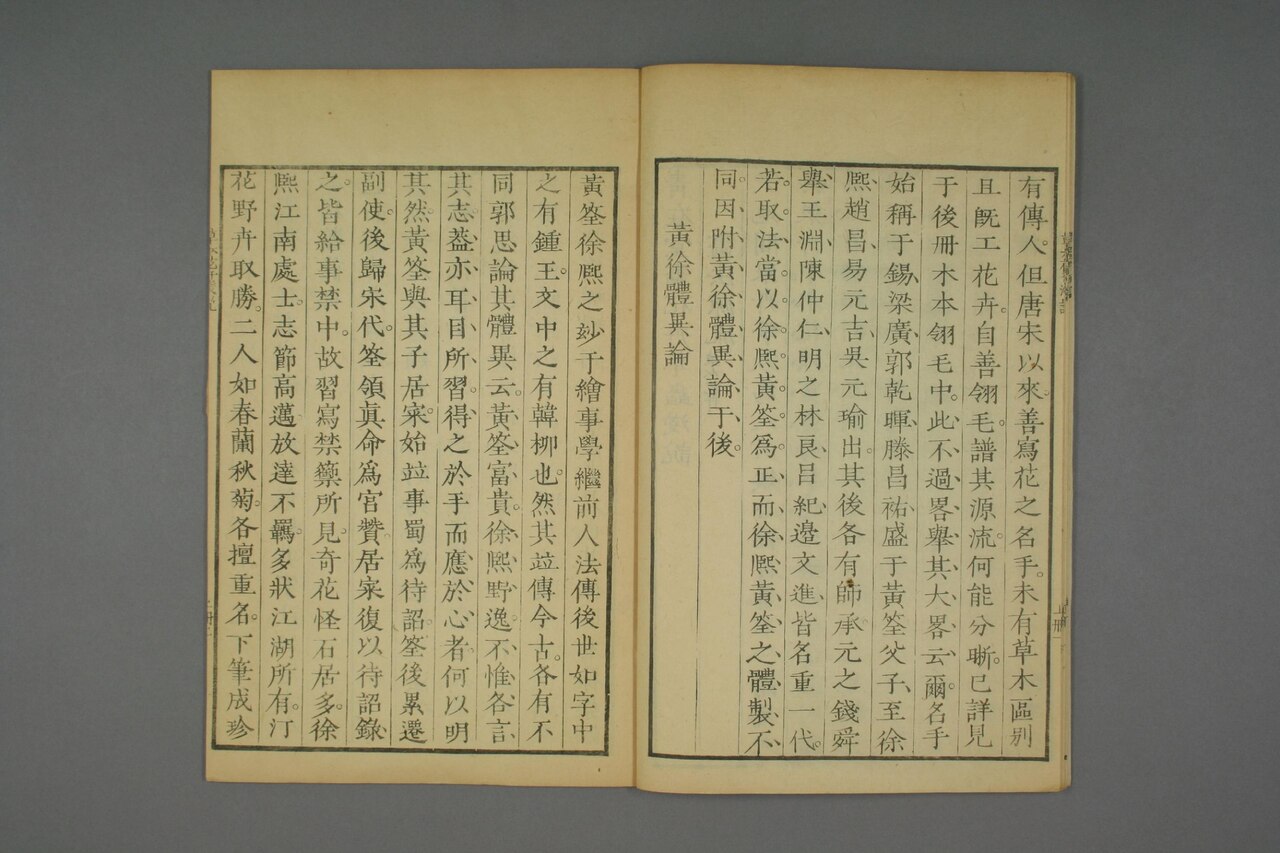 有傳人。但唐宋以來。善寫花之名手。未有草木區別
且旣工花卉。自善翎毛。譜其源流。何能分晣。已詳見
于後冊木本翎毛中。此不過畧舉其大畧云爾。名手
始稱于錫、梁廣、郭乾暉、滕昌祐、盛于黃筌父子、至徐
熈、趙昌、易元吉、吳元瑜出。其後各有師承。元之錢舜
舉、王淵、陳仲仁、明之林良、呂紀、邊文進、皆名重一代。
若取法當以徐熈黃筌爲正、而徐熈黃筌之體製、不
同。因附黃徐體異論于後。
黃徐體異論
黃筌徐熈之妙于繪事。學繼前人。法傳後世。如字中
之有鍾王。文中之有韓柳也。然其竝傳今古。各有不
同。郭思論其體異云。黃筌富貴。徐熈野逸。不惟各言
其志。蓋亦耳目所習。得之於手而應於心者。何以明
其然。黃筌與其子居寀。始竝事蜀爲待詔。筌後累遷
副使。後歸宋代。筌領眞命爲官贊。居寀復以待詔錄
之。皆給事禁中。故習寫禁籞所見。奇花怪石居多。徐
熈江南處士。志節高邁。放達不羈。多狀江湖所有。汀
花野卉取勝。二人如春蘭秋菊。各擅重名。下筆成珍